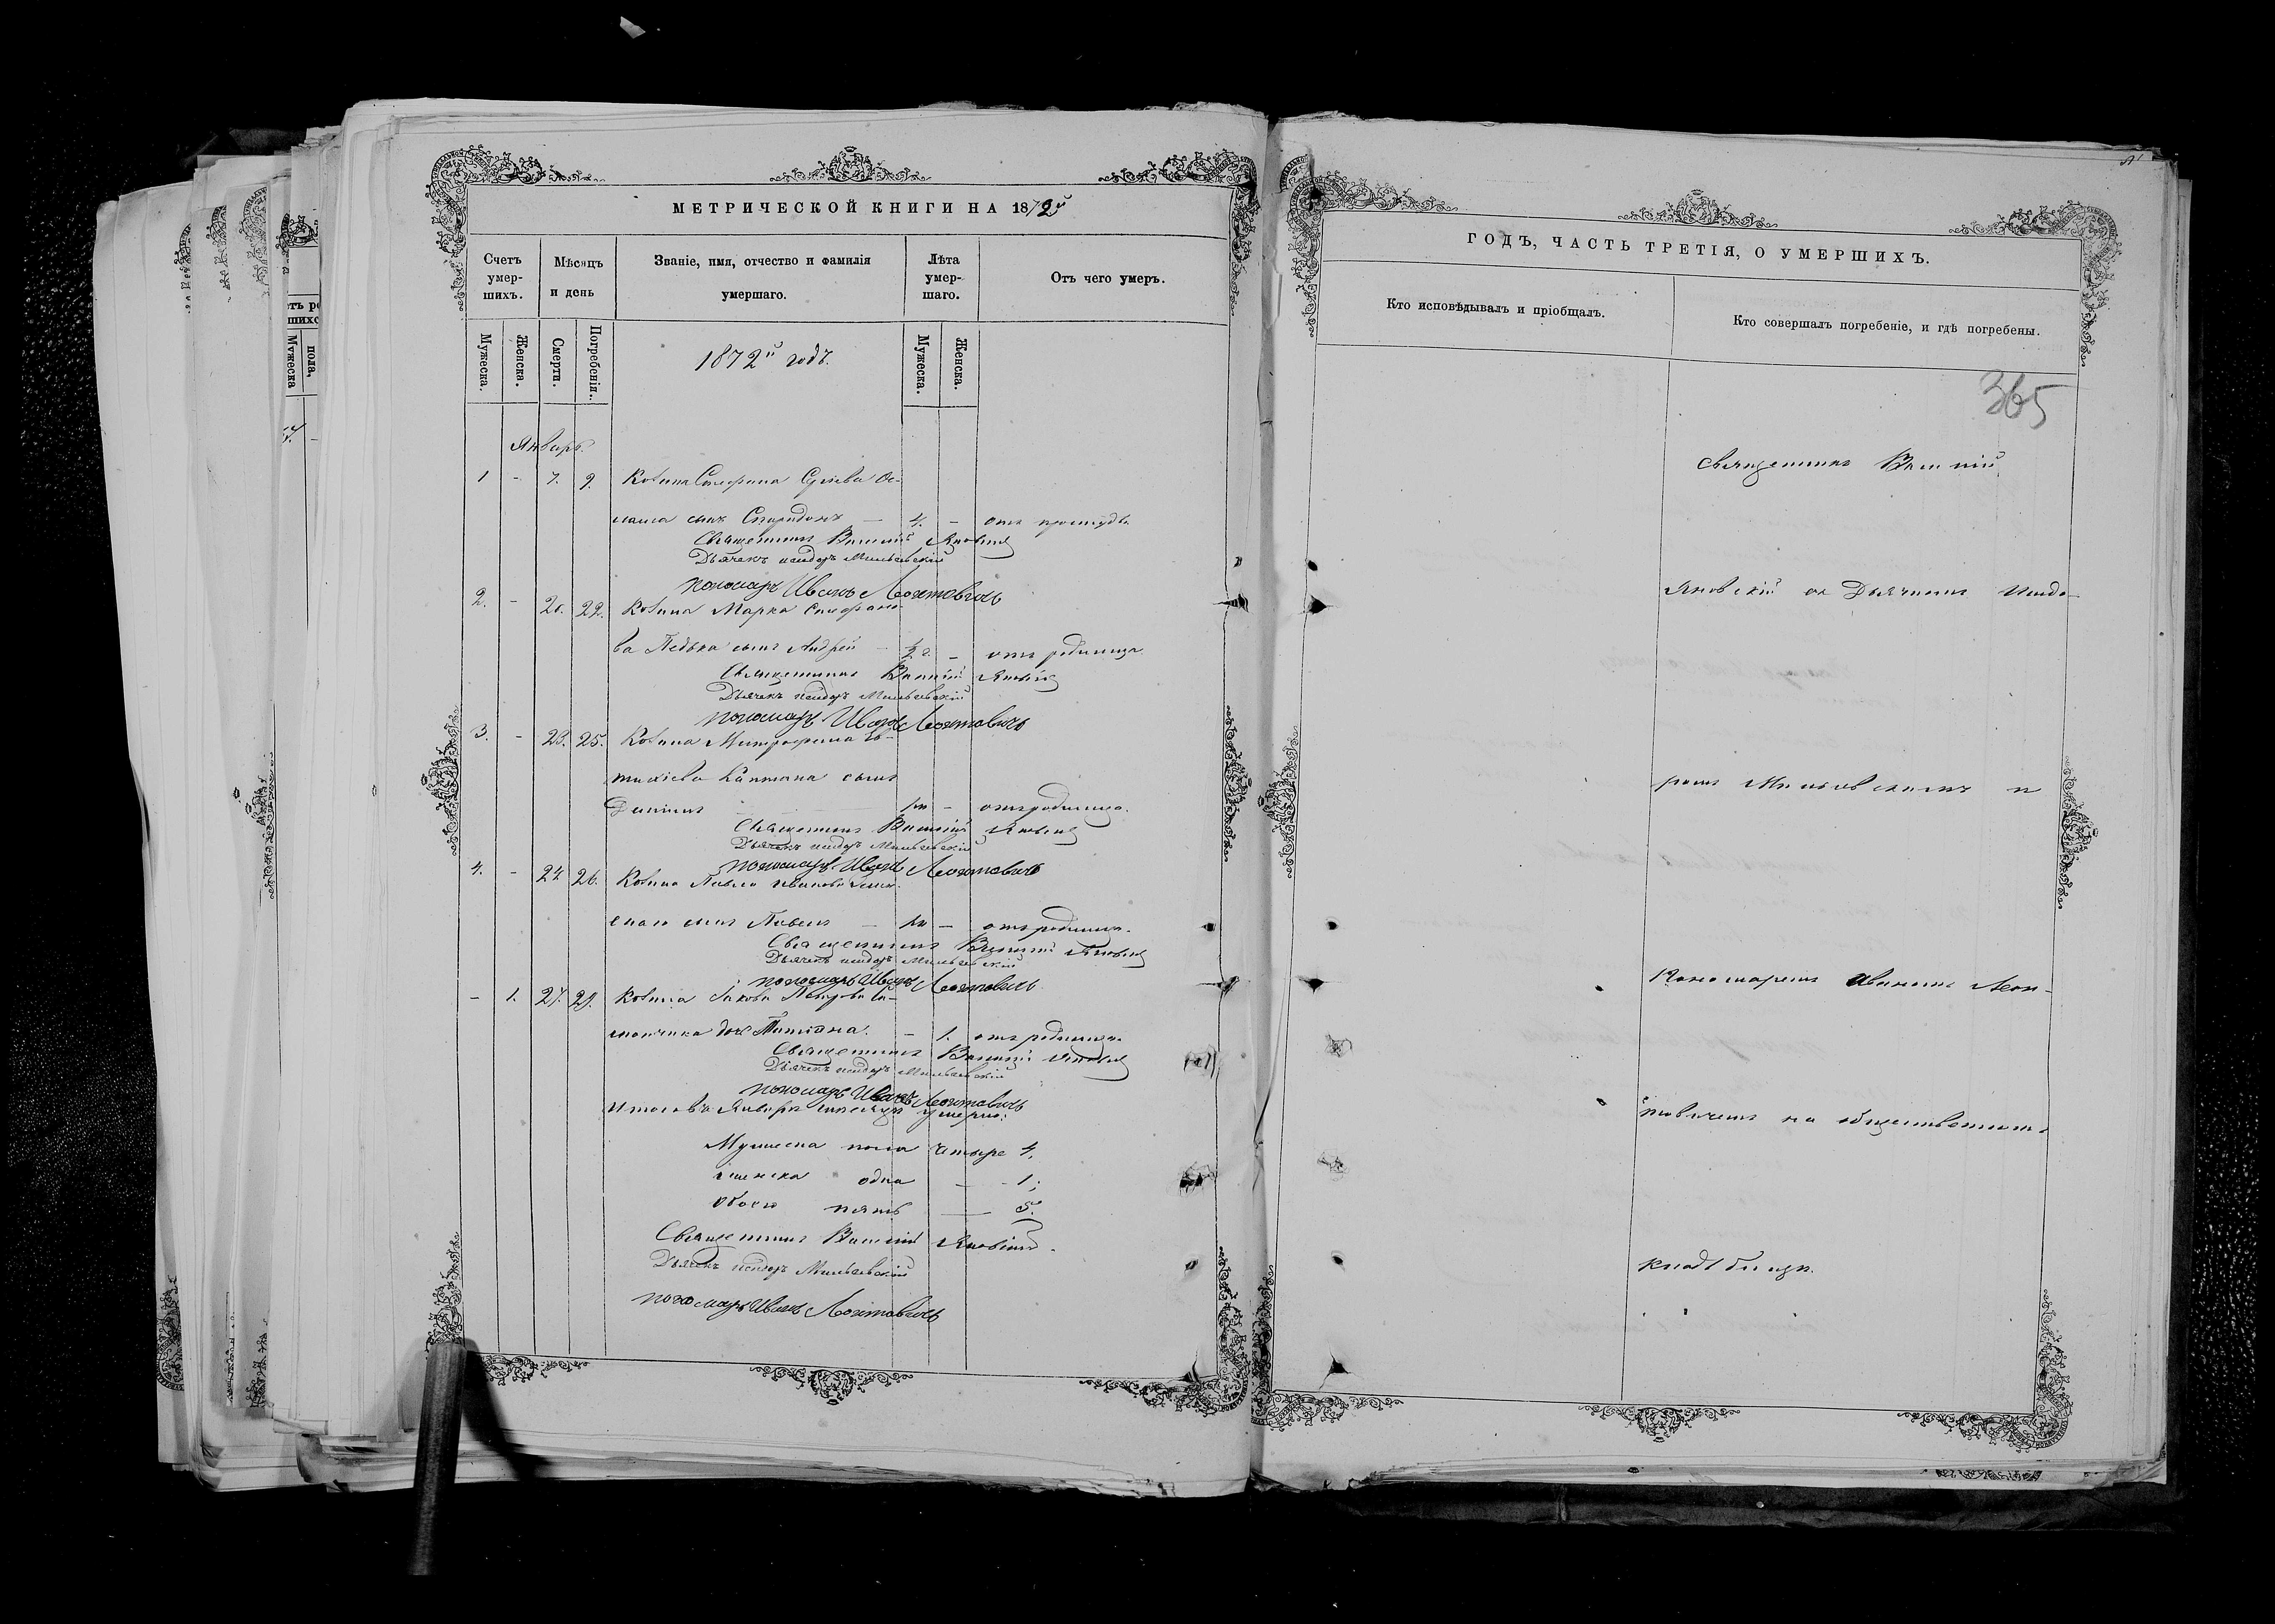 МЕТРИЧЕСКОЙ КНИГИ НА 1872й
Счетъ умер-шихъ.
Мѣсяцъ и день
Званіе, имя, отчество и фамилія умершаго.
Лѣта умер-шаго.
Отъ чего умеръ.
Мужеска.
Женска.
Смерти.
Погребенія.
1872й годъ.
Мужеска.
Женска.
Январь.
1 - 7. 9. Козака
сынъ Спиридонъ — 4. - отъ простуды
Священникъ Василій Яновскій
Дьячекъ Исидоръ Мильевскій
Пономарь Иванъ Леонтовичъ
2. - 20. 22. Козака Марка
сынъ Андрей - - отъ родимца
Священникъ Василій Яновскій
Дьячекъ Исидоръ Мильевскій
Пономарь Иванъ Леонтовичъ
3. - 23. 25. Козака Митрофана Ев-
тихіева сынъ
- отъ родимца.
Священникъ Василій Яновскій
Дьячекъ Исидоръ Мильевскій
Пономарь Иванъ Леонтовичъ
4. - 24 26. Козака Павла Иванова
сынъ Павелъ — - отъ родимца.
Священникъ Василій Яновскій
Дьячекъ Исидоръ Мильевскій
Пономарь Иванъ Леонтовичъ
- 1. 27. 29. Козака Якова Петрова
дочь Татіана. - 1. отъ родимца.
Священникъ Василій Яновскій
Дьячекъ Исидоръ Мильевскій
Пономарь Иванъ Леонтовичъ
Итого въ Январѣ мѣсяцѣ умерло:
Мужеска пола четыре 4.
женска одна — 1;
обоего пять — 5.
Священникъ Василій Яновскій.
Дьячекъ Исидоръ Мильевскій
Пономарь Иванъ Леонтовичъ
ГОДЪ, ЧАСТЬ ТРЕТІЯ, О УМЕРШИХЪ.
Кто исповѣдывалъ и пріобщалъ.
Кто совершалъ погребеніе, и гдѣ погребены.
365
Священникъ Василій
Яновскій съ Дьячкомъ Исидо-
ромъ Мильевскимъ и
Пономаремъ Иваномъ Леон-
товичемъ на общественномъ
кладбищѣ.